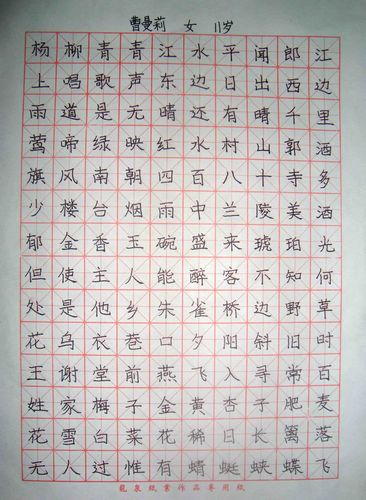 曹曼莉 女 11岁
杨柳青青江水平闻郎江
上唱歌声东边日出西边
雨道是无晴还有晴千里
莺啼绿映红水村山郭酒
旗风南朝四百八十寺多
少楼台烟雨中兰陵美酒
郁金香玉碗盛来琥珀光
但使主人能醉客不知何
处是他乡朱雀桥边野草
花乌衣巷口夕阳斜旧时
王谢堂前燕飞入寻常百
姓家梅子金黄杏子肥麦
花雪白菜花稀日长篱落
无人过惟有蜻蜓蛱蝶飞
龍泉紙業作品專用紙